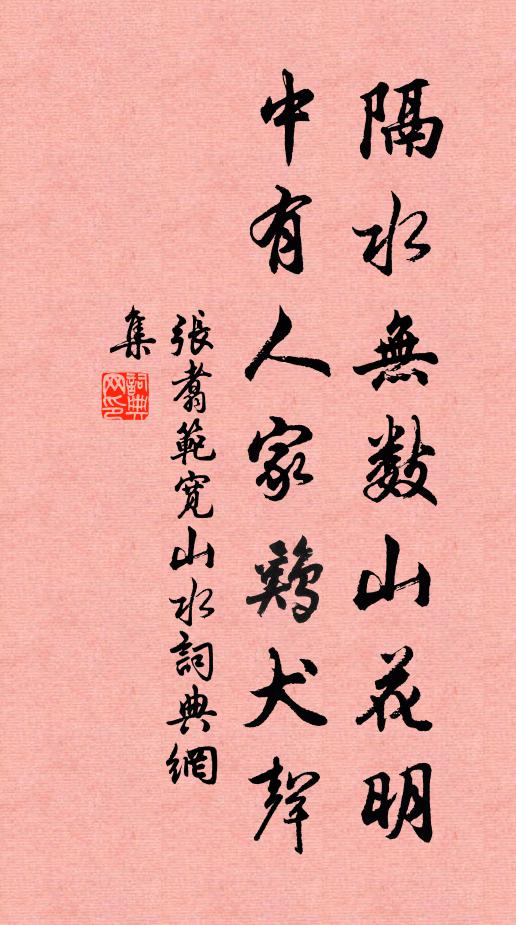 隔水無數山花明
中有人家鷄犬聲
張翥範寬山水詞典網
集
詞典
网印